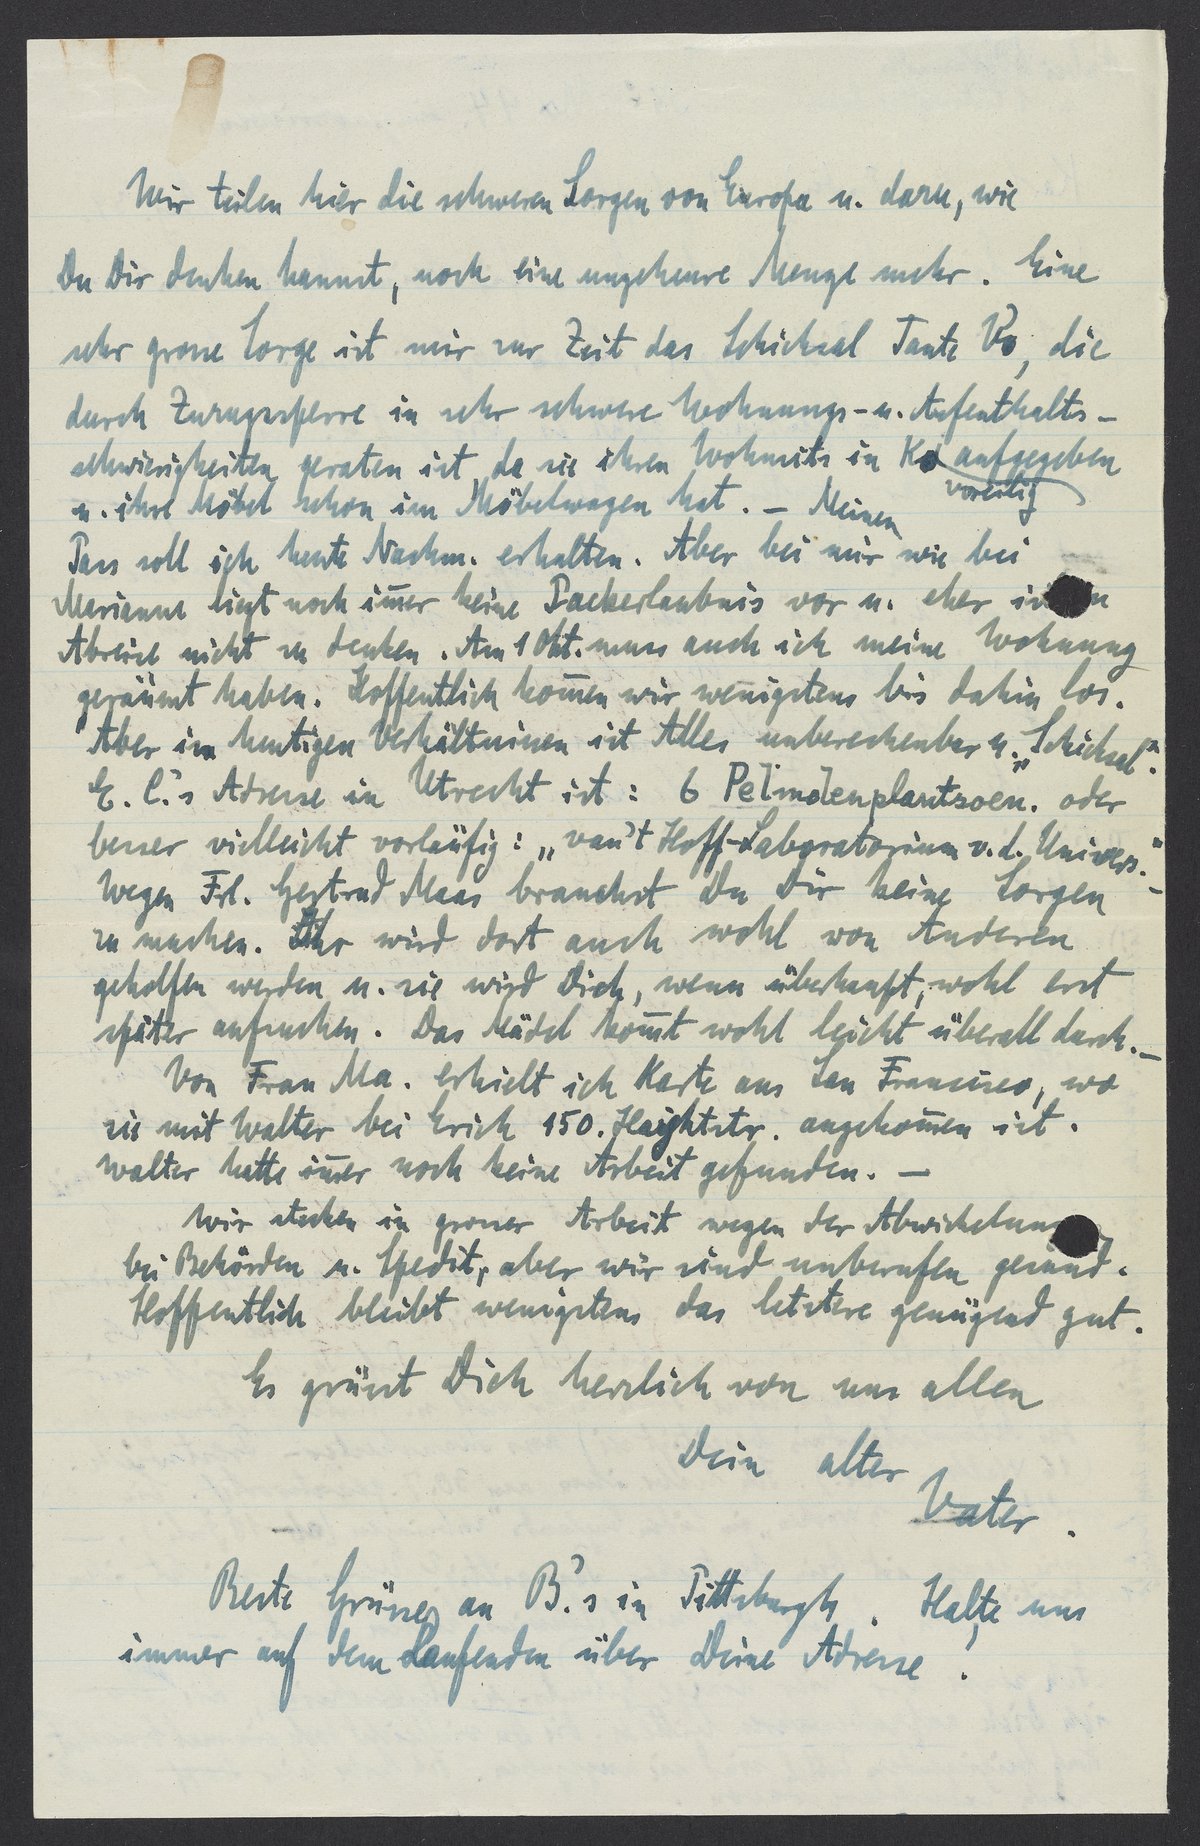 Wir teilen hier die schweren Sorgen von Europa u. dazu, wie
Du Dir denken kannst, noch eine ungeheure Menge mehr. Eine
sehr grosse Sorge ist mir zur Zeit das Schicksal Tante Vo, die
durch Zuzugssperre in sehr schwere Wohnungs- u. Aufenthalts-
schwierigkeiten geraten ist, da sie ihren Wohnsitz in aufgegeben
voreilig
u. ihre Möbel schon im Möbelwagen hat. – Meinen
Pass soll ich heute Nachm. erhalten. Aber bei mir wie bei
Marianne liegt noch im̄er keine Packerlaubnis vor u. eher ist an
Abreise nicht zu denken. Am 1 Okt. muss auch ich meine Wohnung
geräumt haben. Hoffentlich kom̄en wir wenigstens bis dahin los.
Aber im heutigen Verhältnissen ist Alles unberechenbar u. „Schicksal".
E. C.'s Adresse in Utrecht ist: 6 Pelmolenplantsoen. oder
besser vielleicht vorläufig: „van't Hoff-Laboratorium v. d. Univers."
Wegen Frl. Gertrud Maas brauchst Du Dir keine Sorgen –
zu machen. Ihr wird dort auch wohl von Anderen
geholfen werden u. sie wird Dich, wenn überhaupt, wohl erst
später aufsuchen. Das Mädel kom̄t wohl leicht überall durch. –
Von Frau Ma. erhielt ich Karte aus San Francisco, wo
sie mit Walter bei Erich 150. Haightstr. angekom̄en ist.
Walter hatte im̄er noch keine Arbeit gefunden. –
Wir stecken in grosser Arbeit wegen der Abwickelung
bei Behörden u. Spedit., aber wir sind unberufen gesund.
Hoffentlich bleibt wenigstens das letztere genügend gut.
Es grüsst Dich herzlich von uns allen
Dein alter
Vater.
Beste Grüsse an B.'s in Pittsburgh. Halte uns
immer auf dem Laufenden über Deine Adresse.